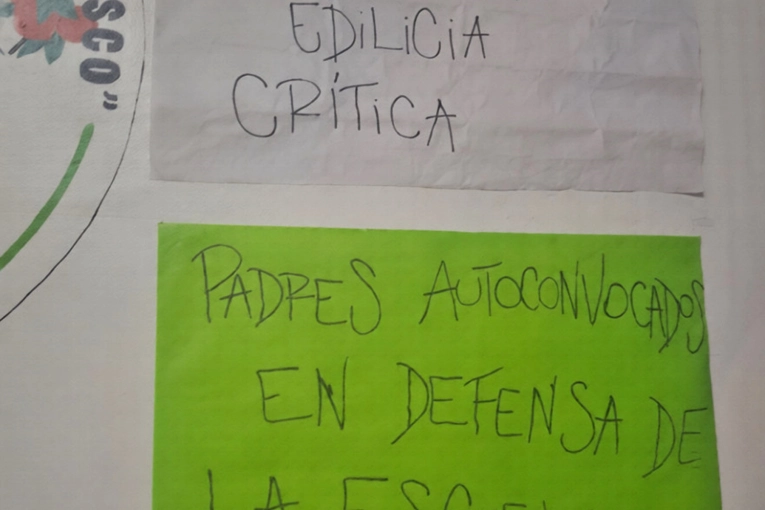 SCO"
EDILICIA
CRÍTICA
PADRES AUTOCONVOCADOS
EN DEFENSA DE
LA